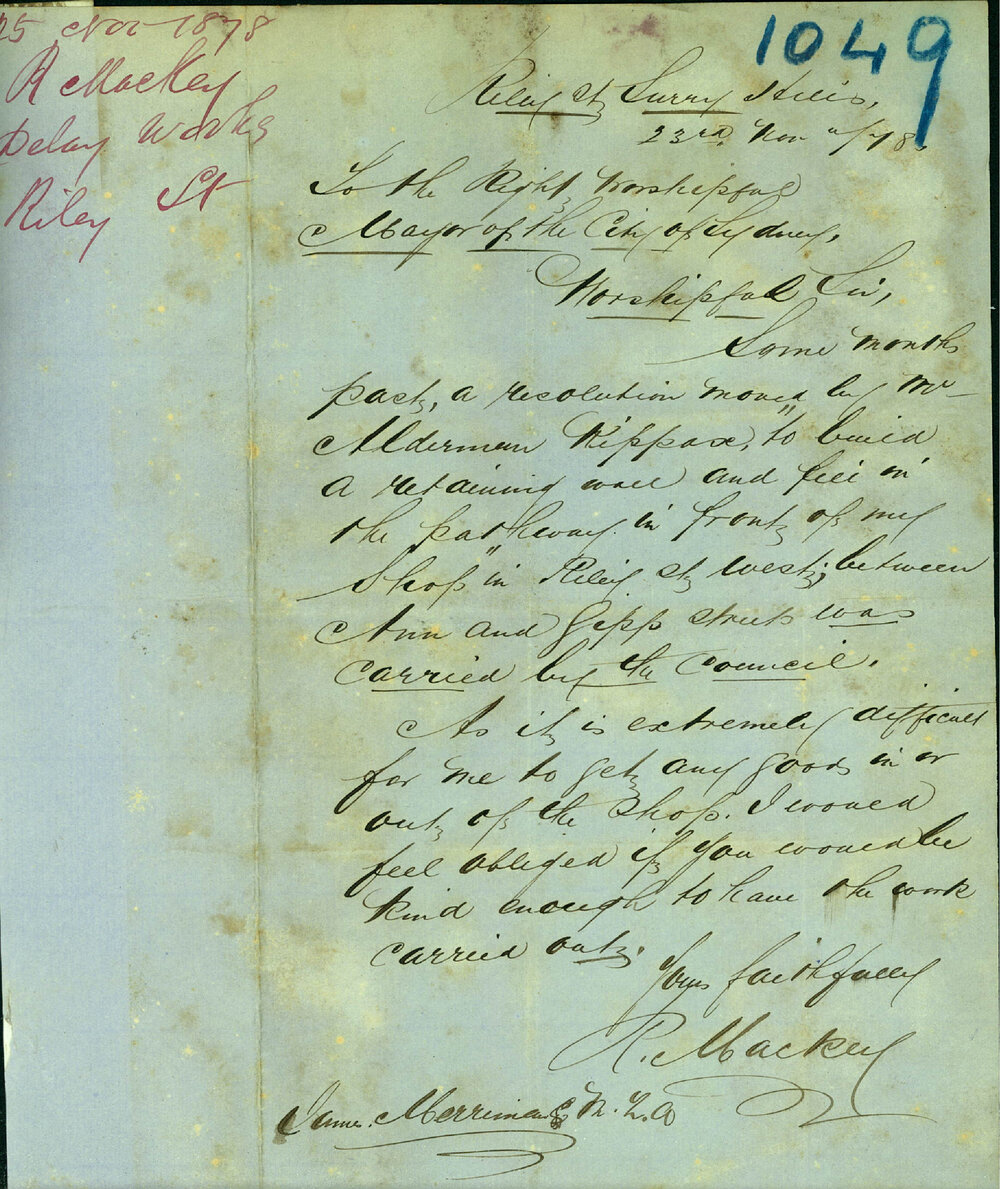 25 Nov 1878
R Mackey
Delay Works
Riley St
1049
Riley St Surry Hills,
23rd Nov /78.
To the Right Worshipful
Mayor of the City of Sydney,
Worshipful Sir,
Some months
past, a resolution moved by Mr
Alderman Kippax, "to build
a retaining wall and fill in
the pathway in front of my
Shop" in Riley St West, between
Ann and Gipps streets was
carried by the Council.
As it is extremely difficult
for me to get any goods in or
out of the Shop. I would
feel obliged if you would be
kind enough to have the work
carried out.
Yours faithfully
R. Mackey
James Merriman M.L.A